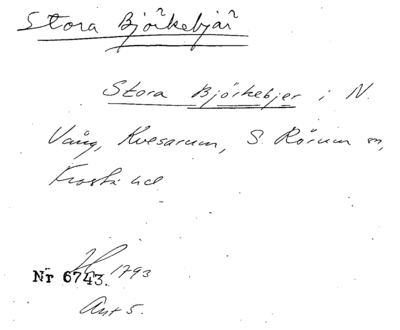 Stora Björkebjär
Stora Björkebjer i N.
Vång, Kvesarum, S. Rörum sn,
Frosta hd
Nr 6743. 1793
Akt 5.